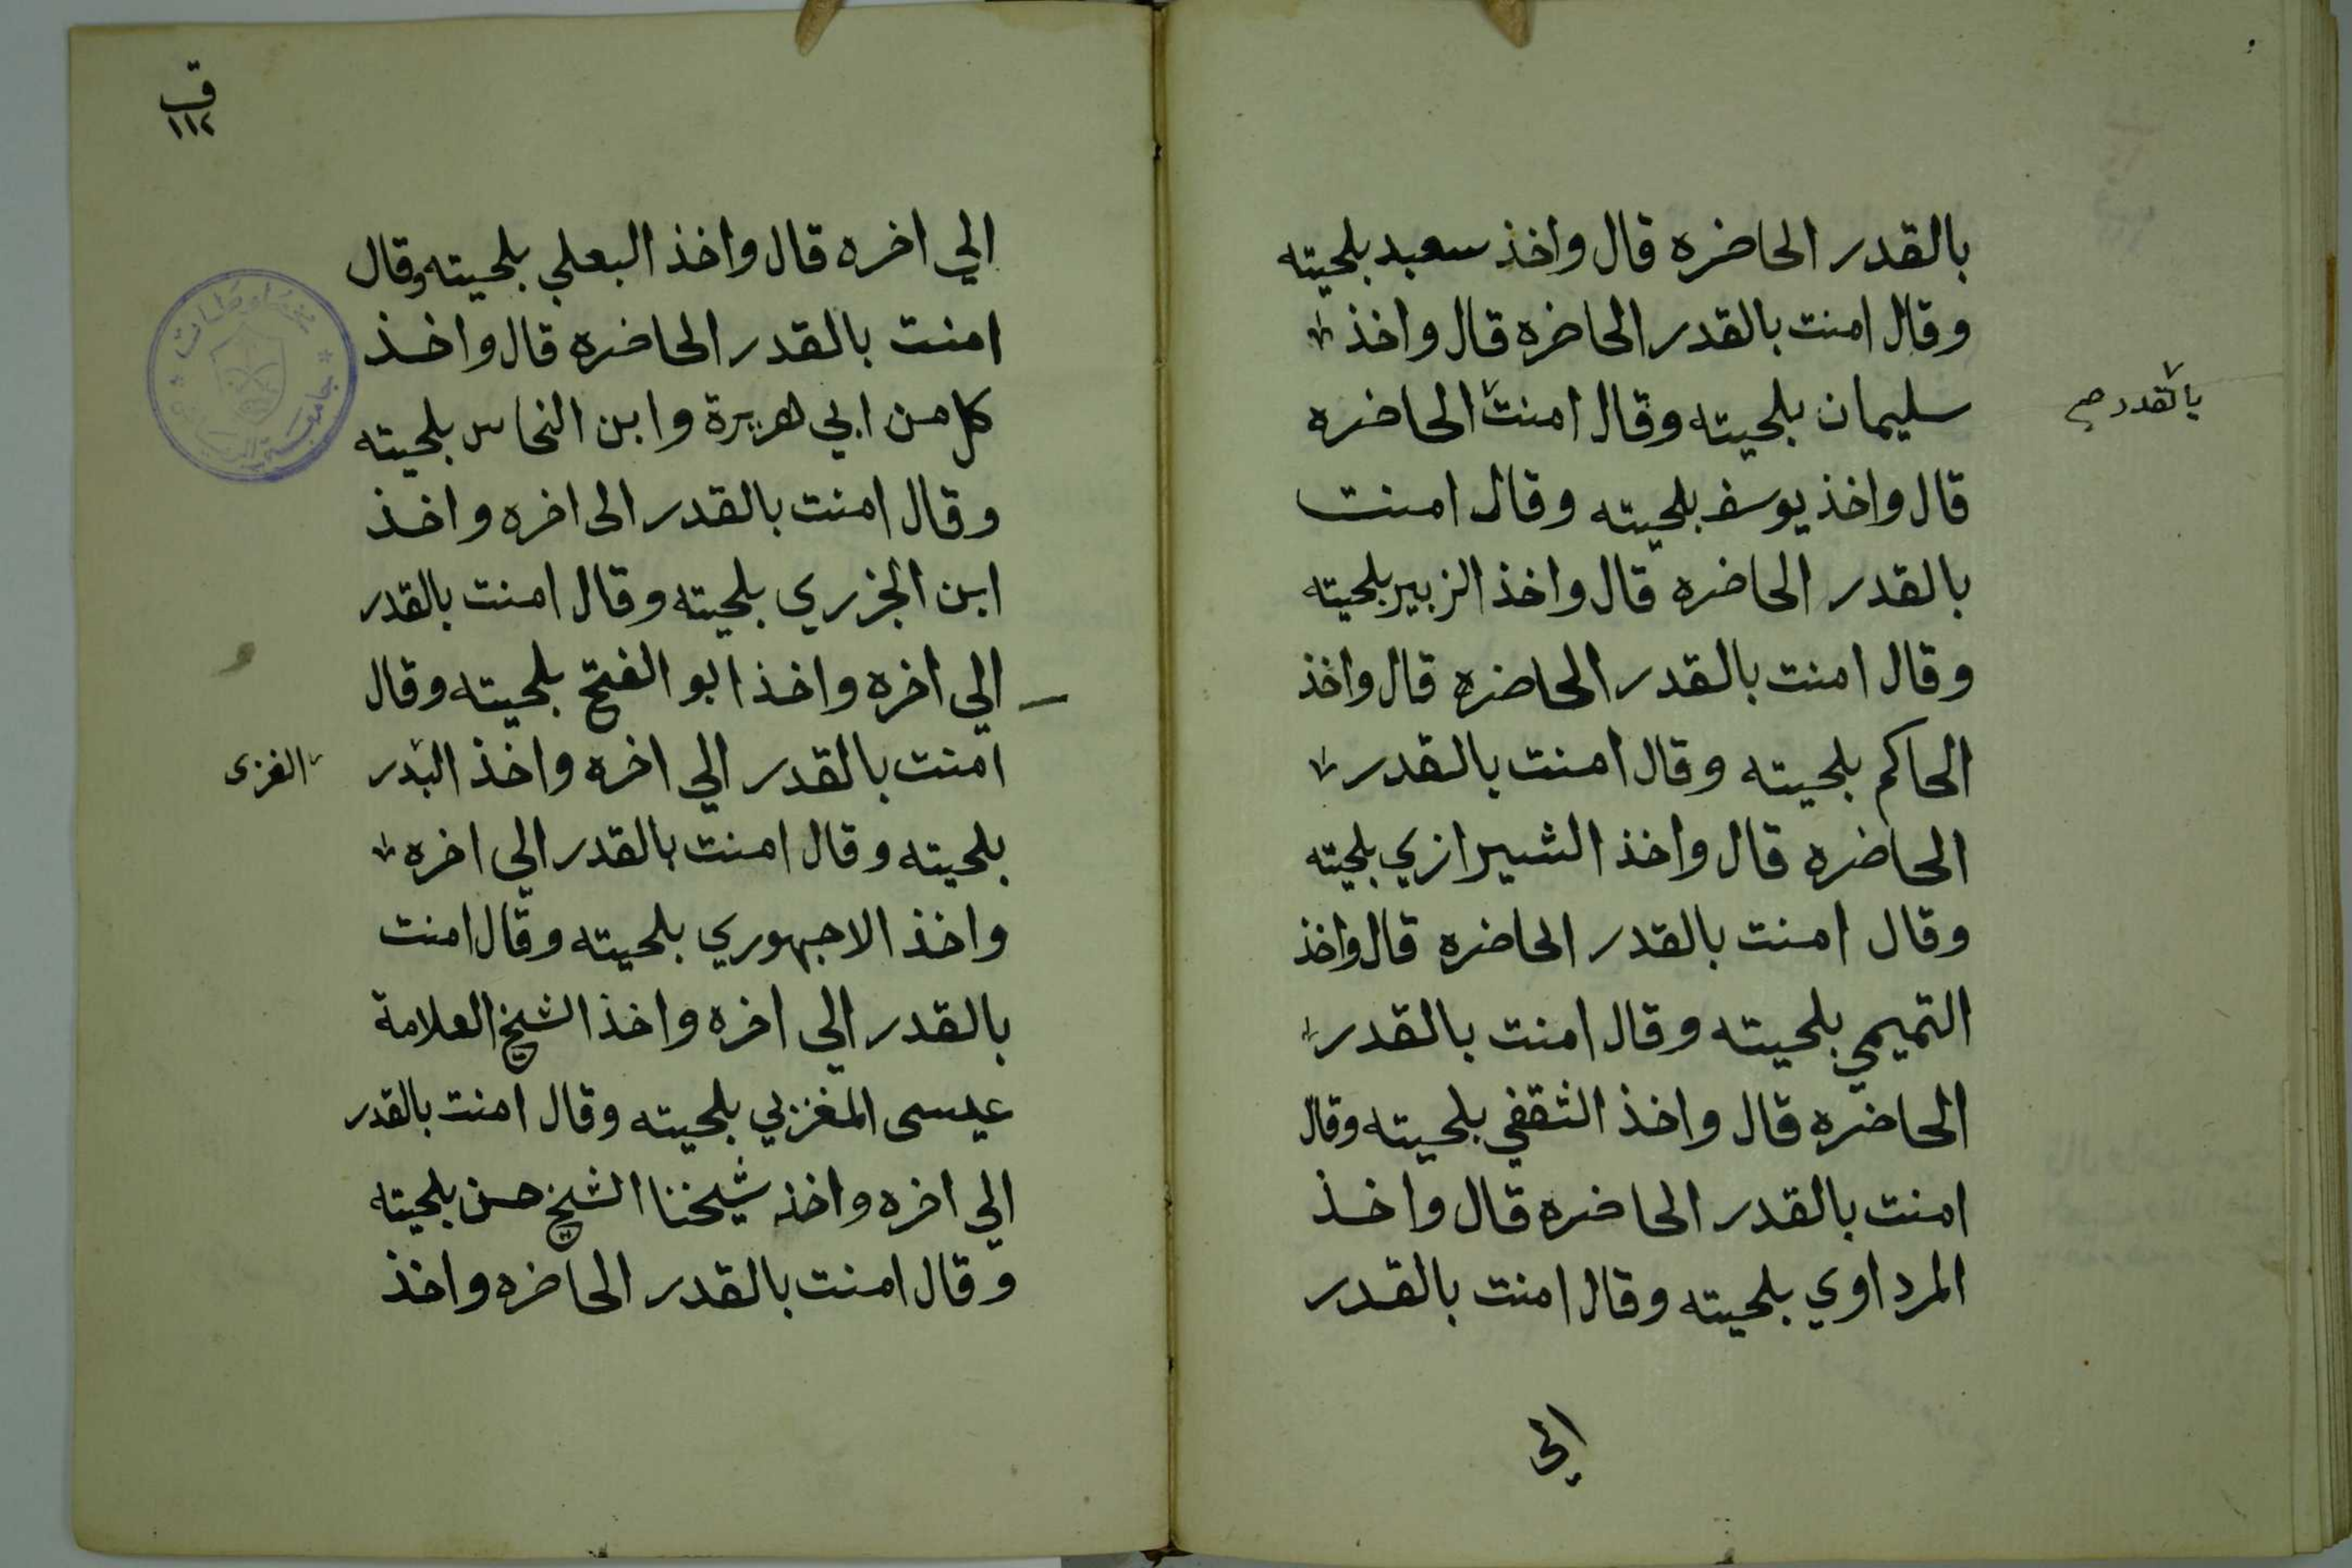 بالقدر الحاضره قال واخذ سعيد بلحيته
وقال امنت بالقدر الحاضره قال واخذ
سليمان بلحيته وقال امنت الحاضره
بالقدر صح
قال واخذ يوسف بلحيته وقال امنت
بالقدر الحاضره قال واخذ الزبير بلحيته
وقال امنت بالقدر الحاضره قال واخذ
الحاكم بلحيته وقال امنت بالقدر
الحاضره قال واخذ الشيرازي بلحيته
وقال امنت بالقدر الحاضره قال واخذ
التميمي بلحيته وقال امنت بالقدر
الحاضره قال واخذ الثقفي بلحيته وقال
امنت بالقدر الحاضره قال واخذ
المرداوي بلحيته وقال امنت بالقدر
الي
ق
١١٢
الي اخره قال واخذ البعلي بلحيته وقال
امنت بالقدر الحاضره قال واخذ
كل من ابي هريرة وابن النحاس بلحيته
وقال امنت بالقدر الى اخره واخذ
ابن الجزري بلحيته وقال امنت بالقدر
الي اخره واخذ ابو الفتح بلحيته وقال
امنت بالقدر الي اخره واخذ البدر
الغزى
بلحيته وقال امنت بالقدر الي اخره
واخذ الاجهوري بلحيته وقال امنت
بالقدر الي اخره واخذ الشيخ العلامة
عيسى المغزبي بلحيته وقال امنت بالقدر
الي اخره واخذ شيخنا الشيخ حسن بلحيته
وقال امنت بالقدر الحاضره واخذ